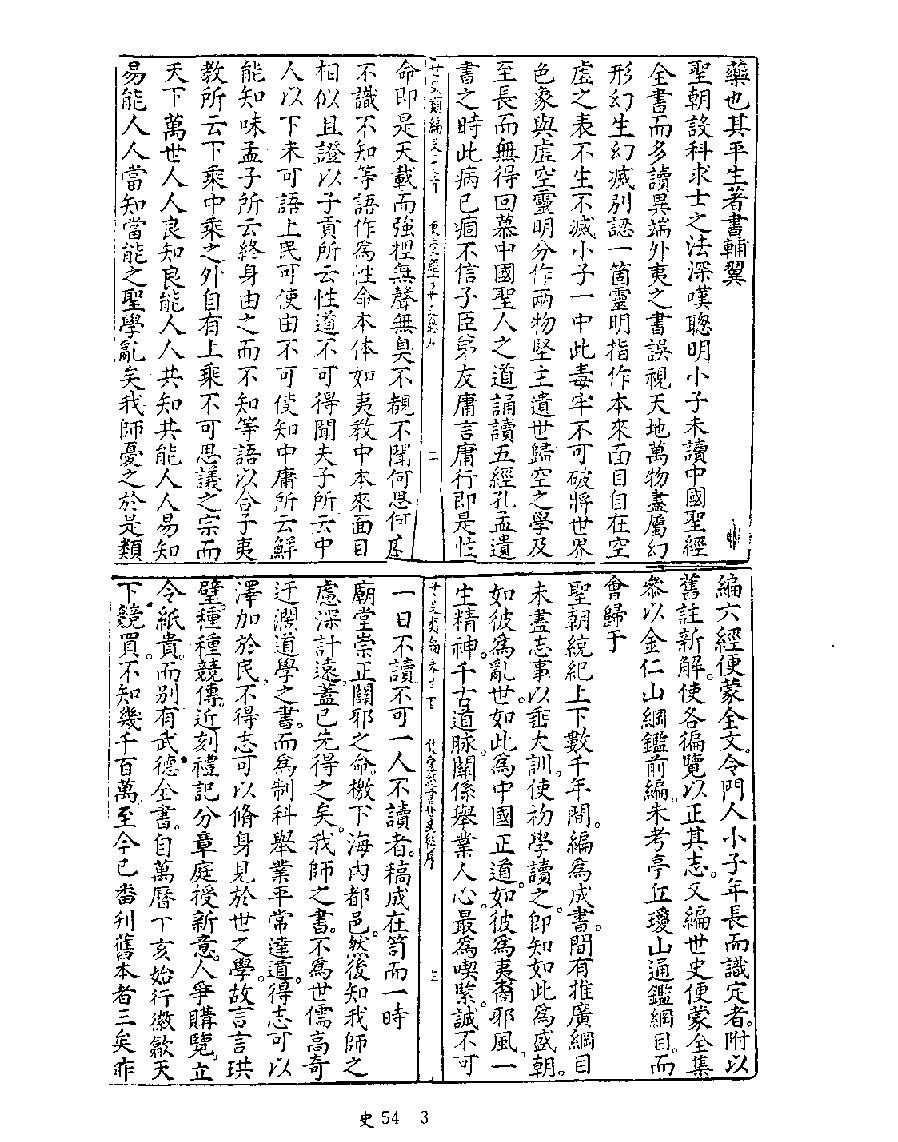 藥也其平生著書輔翼
聖朝設科求士之法深嘆聰明小子未讀中國聖經
全書而多讀異端外夷之書誤視天地萬物盡屬幻
形幻生幻滅別認一箇靈明指作本來面目自在空
虛之表不生不滅小子一中此毒牢不可破將世界
色象與虛空靈明分作兩物堅主遺世歸空之學及
至長而無得回慕中國聖人之道誦讀五經孔孟遺
書之時此病已痼不信子臣弟友庸言庸行即是性
二
命即是天載而強捏無聲無臭不覩不聞何思何
不識不知等語作為性命本体如夷教中本來面目
相似且證以子貢所云性道不可得聞夫子所云中
人以下未可語上民可使由不可使知中庸所云鮮
能知味孟子所云終身由之而不知等語以合于夷
教所云下乘中乘之外自有上乘不可思議之宗而
天下萬世人人良知良能人人共知共能人人易知
易能人人當知當能之聖學亂矣我師憂之於是類
編六經便蒙全文。令門人小子年長而識定者。附以
舊註新解。使各徧覽以正其志。又編世史便蒙全集
參以金仁山綱鑑前編。朱考亭丘瓊山通鑑綱目。而
會歸于
聖朝統紀上下數千年間。編為成書。間有推廣綱目
未盡志事。以垂大訓。使初學讀之。即知如此為盛朝。
如彼為亂世。如此為中國正道。如彼為夷裔邪風。一
生精神。千古道脉。關係舉業人心。最為喫緊。誠不可
三
一日不讀。不可一人不讀者。稿成在笥而一時
廟堂崇正闢邪之命。檄下海內都邑。然後知我師之
慮深計遠。蓋已先得之矣。我師之書。不為世儒高奇
迂濶道學之書。而為制科舉業平常達道。得志可以
澤加於民。不得志可以脩身見於世之學。故言言珙
璧。種種競傳。近刻禮記分章庭授新意。人爭購覽。立
令紙貴。而別有武德全書。自萬曆丁亥始行徽歙天
下競買。不知幾千百萬。至今已畨刋舊本者三矣昨
史 54 3